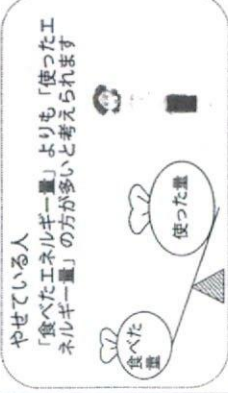 やせている人
「食べたエネルギー量」よりも「使ったエ
ネルギー量」の方が多いと考えられます
食べた
量
使った量